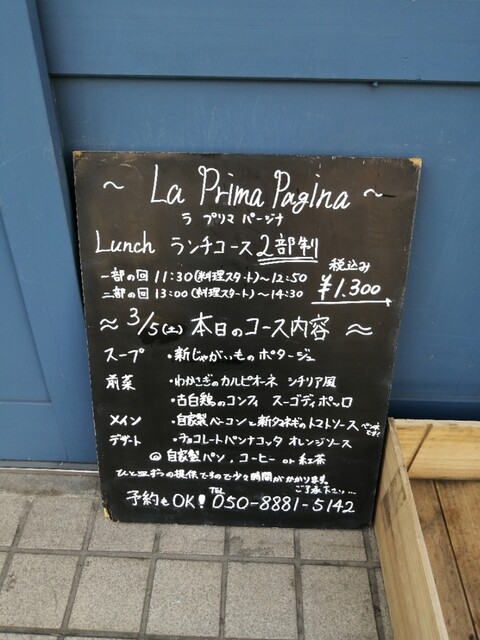 ~ La Prima Pagina ~
ラ プリマ パージナ
Lunch ランチコース 2部制
一部の回 11:30(料理スタート)~12:50
税込み
二部の回 13:00(料理スタート)~14:30
¥1.300
≈ 3/5(土) 本日のコース内容 ≈
スープ ・新じゃがいものポタージュ
前菜 ・わかさぎのカルピオーネ シチリア風
・古白鶏のコンフィ スーゴディポッロ
メイン ・自家製ベーコンと新タマネギのトマトソース ペンネです
デザート ・チョコレートパンナコッタ オレンジソース
◎ 自家製パン、コーヒー or 紅茶
ひと皿ずつの提供ですので少々時間がかかります。
ご了承下さい…
予約もOK! TEL 050-8881-5142